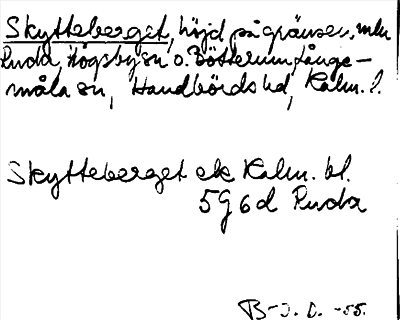 Skytteberget, höjd på gränsen mln
Ruda, Högsby sn o. Bötterum, Långe-
måla sn, Handbörds hd, Kalm. l.
Skytteberget ek Kalm. bl.
5g 6d Ruda
B-J. C. -55.